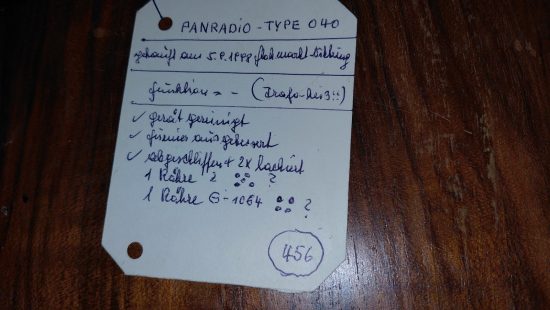 PANRADIO - TYPE 040
gekauft am 5.9.1998 Flohmarkt
Funktion = - (Trafo-hiß!!)
✓ gerät gereinigt
✓ furnier ausgebessert
✓ abgeschliffen + 2X lackiert
1 Röhre 2 ?
1 Röhre G-1064 ?
456